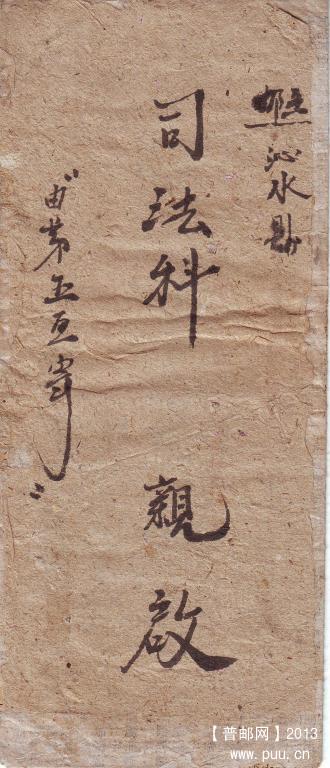 沁水县
司法科 親啟
"由第五区寄"
【普邮网】2013
www.puu.cn